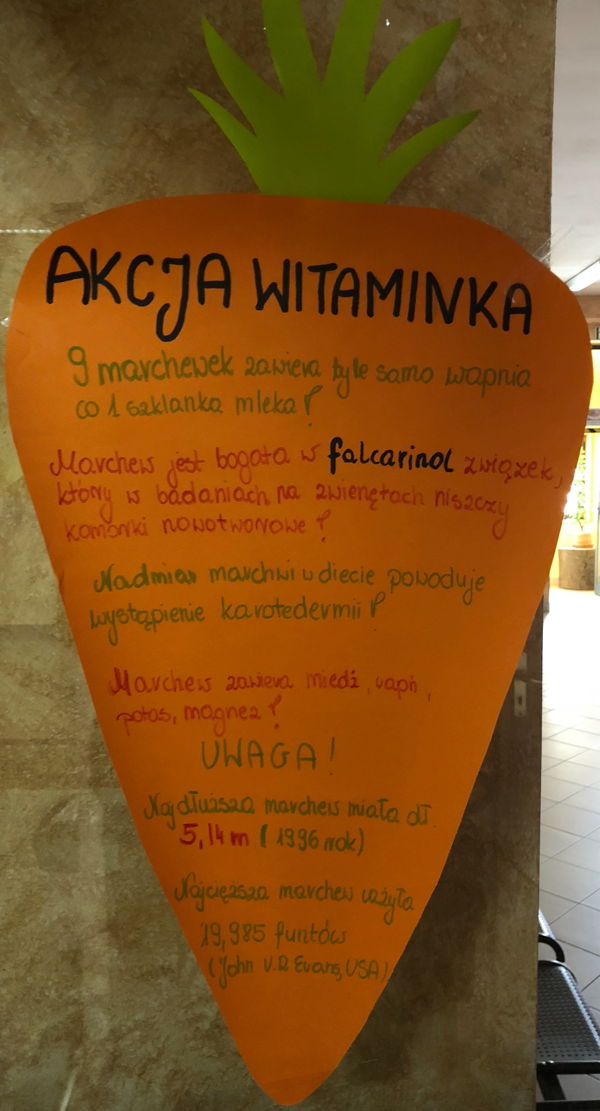 AKCJA WITAMINKA
9 marchewek zawiera tyle samo wapnia
co 1 szklanka mleka!
Marchew jest bogata w falcarinol związek,
który w badaniach na zwierzętach niszczy
komórki nowotworowe!
Nadmiar marchwi w diecie powoduje
wystąpienie karotedermii!
Marchew zawiera miedź, wapń,
potas, magnez!
UWAGA!
Najdłuższa marchew miała dł.
5,14 m (1996 rok)
Najcięższa marchew ważyła
19,985 funtów
(John V.R Evans, USA)